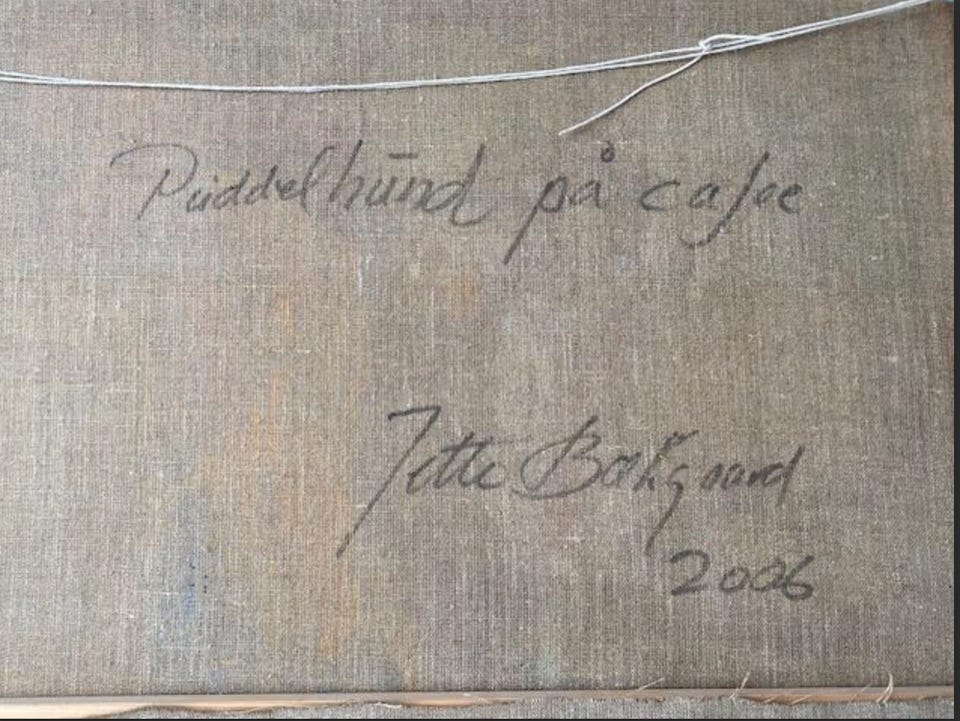 Puddelhund på cafee
Jette Bækgaard
2006